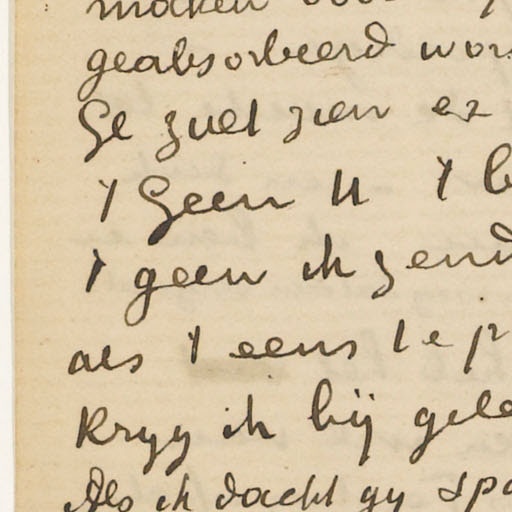 maken
geabsorbeerd wor
Ge zult zien er
't Geen U 't b
't geen ik zend
als 't eens te p
Kryg ik bij gele
Als ik dacht gy spa